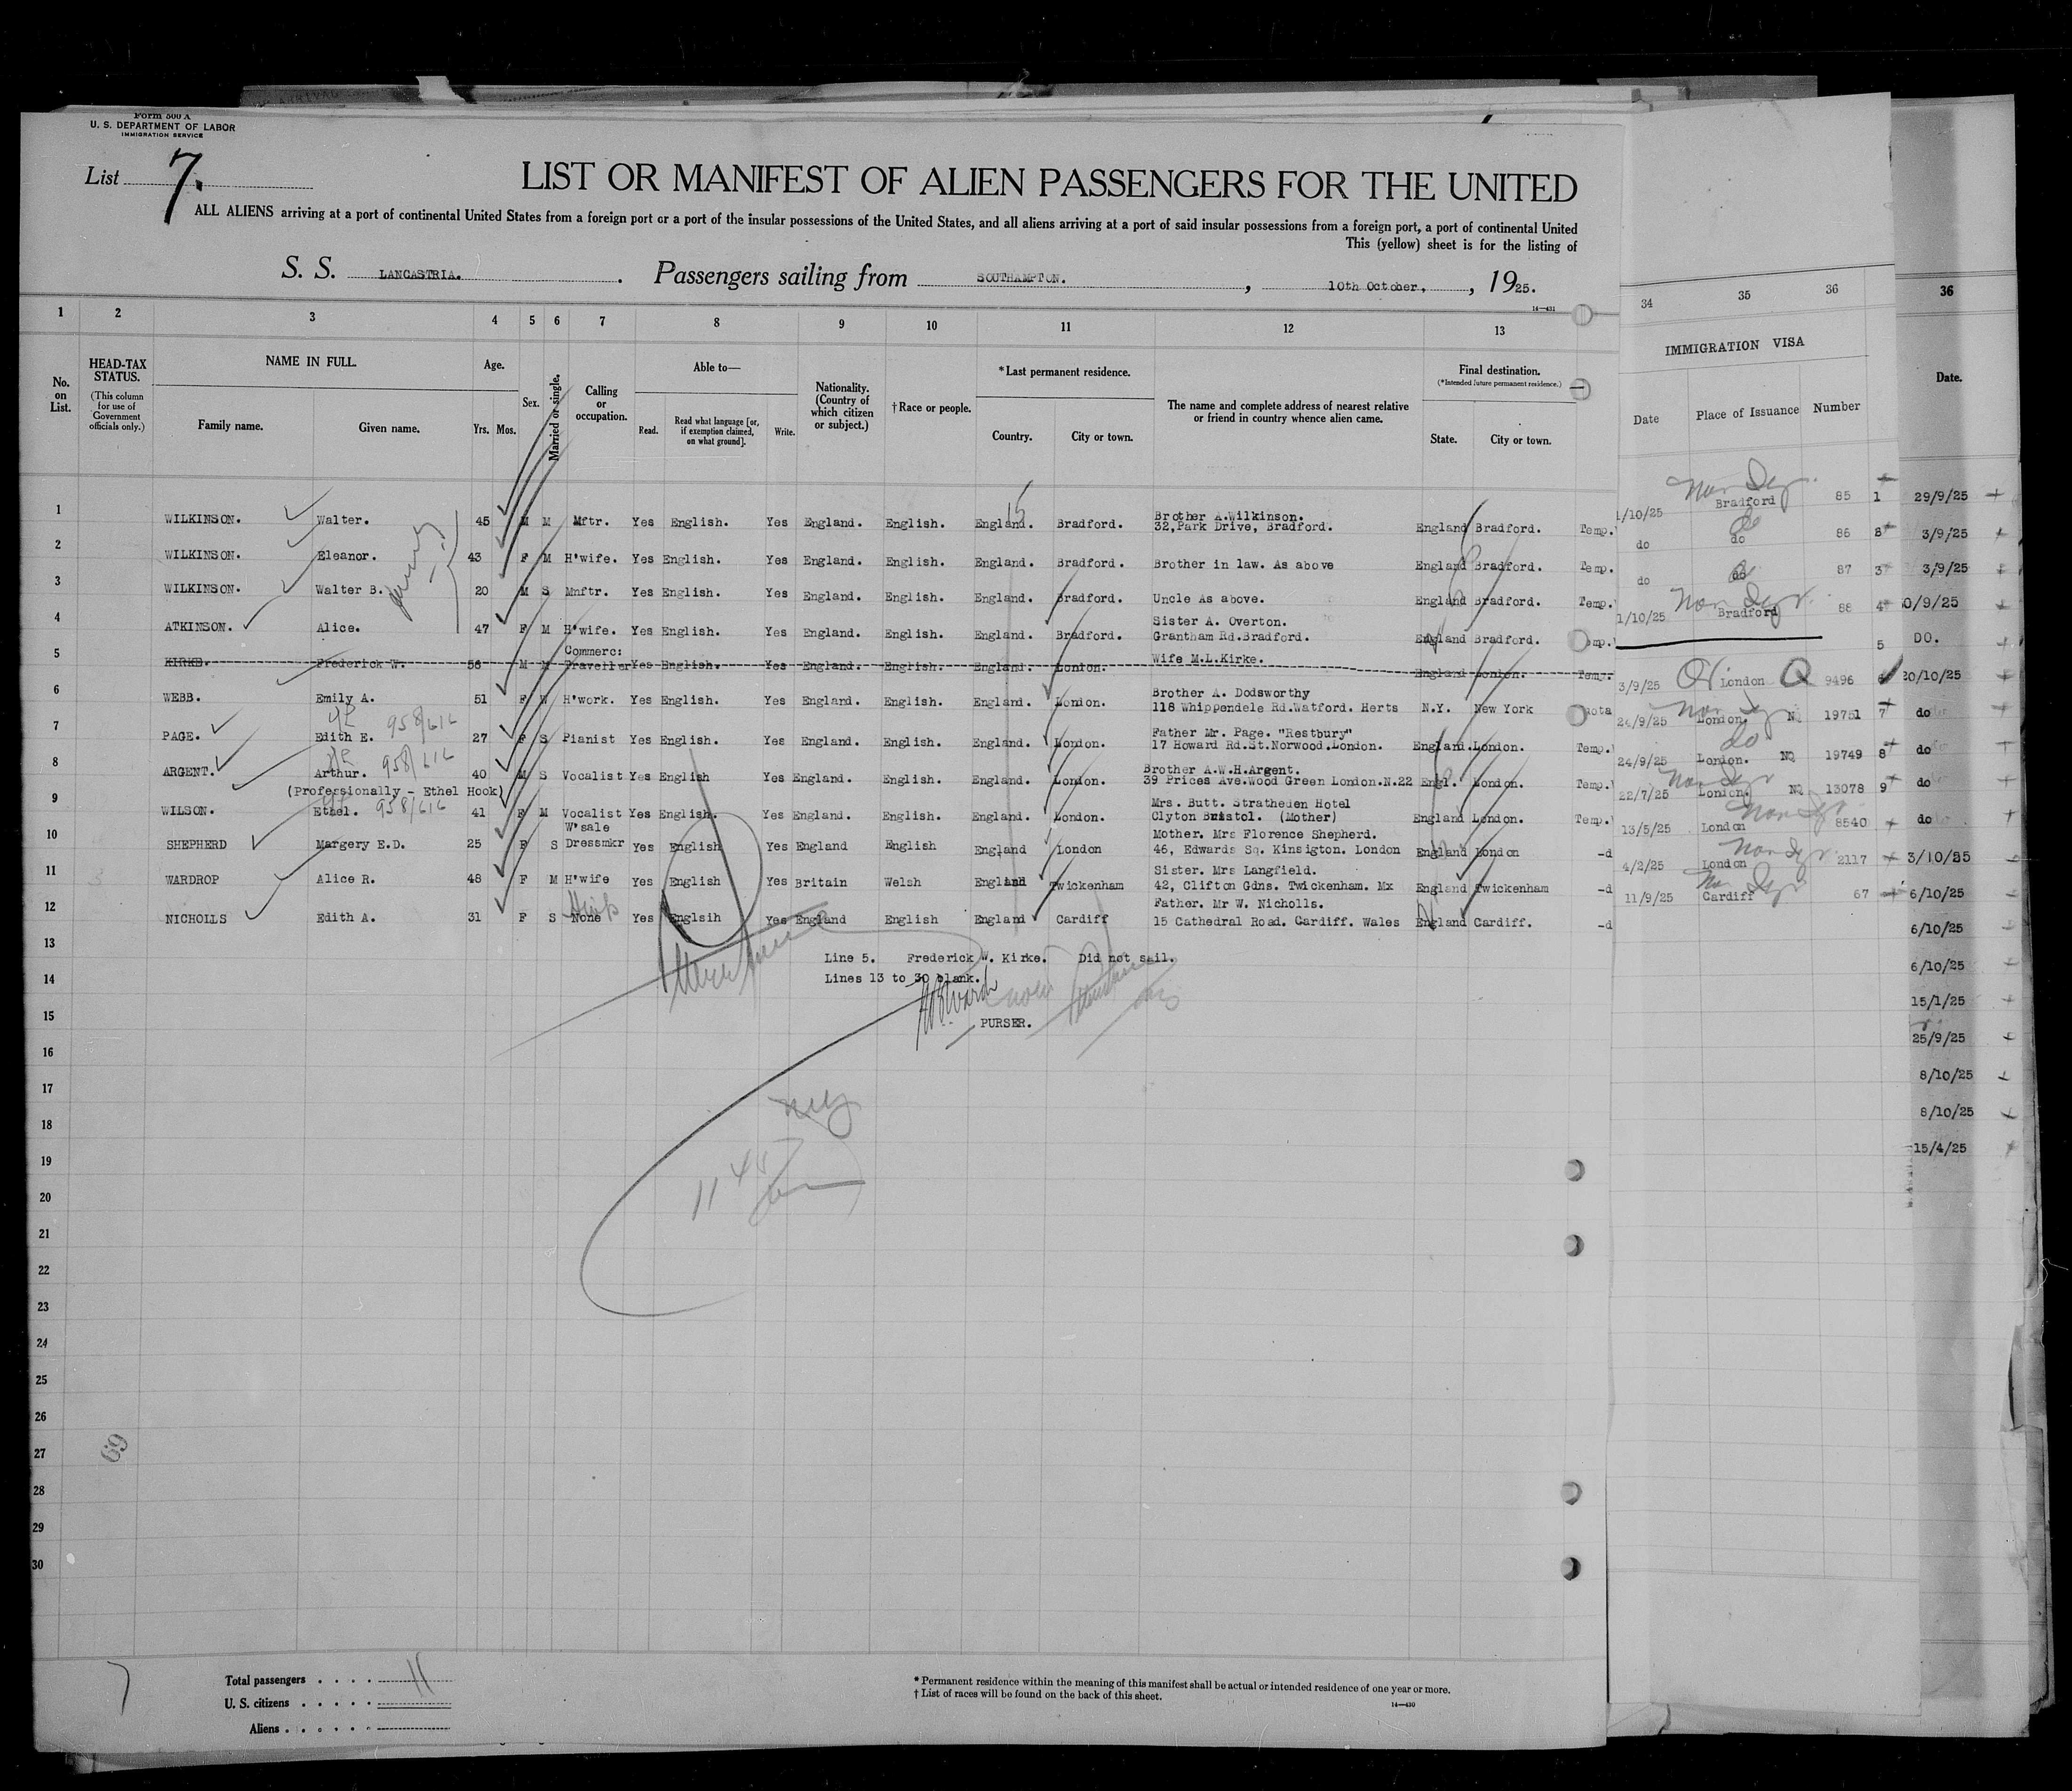 Form 500 A
U. S. DEPARTMENT OF LABOR
IMMIGRATION SERVICE
List 7.
LIST OR MANIFEST OF ALIEN PASSENGERS FOR THE UNITED
ALL ALIENS arriving at a port of continental United States from a foreign port or a port of the insular possessions of the United States, and all aliens arriving at a port of said insular possessions from a foreign port, a port of continental United
This (yellow) sheet is for the listing of
S. S. LANCASTRIA. Passengers sailing from SOUTHAMPTON. , 10th October, , 1925.
14—431
1 2 3 4 5 6 7 8 9 10 11 12 13
No. on List.
HEAD-TAX STATUS.
(This column for use of Government officials only.)
NAME IN FULL.
Family name. Given name.
Age.
Yrs. Mos.
Sex.
Married or single.
Calling or occupation.
Able to—
Read. Read what language [or, if exemption claimed, on what ground]. Write.
Nationality. (Country of which citizen or subject.)
†Race or people.
*Last permanent residence.
Country. City or town.
The name and complete address of nearest relative or friend in country whence alien came.
Final destination.
(*Intended future permanent residence.)
State. City or town.
34 35 36
IMMIGRATION VISA
Date Place of Issuance Number
36
Date.
15
1 WILKINSON. Walter. 45 M M Mftr. Yes English. Yes England. English. England. Bradford. Brother A.Wilkinson.
32,Park Drive, Bradford. England Bradford. Temp.
2 WILKINSON. Eleanor. 43 F M H'wife. Yes English. Yes England. English. England. Bradford. Brother in law. As above England Bradford. Temp.
3 WILKINSON. Walter B. 20 M S Mnftr. Yes English. Yes England. English. England. Bradford. Uncle As above. England Bradford. Temp.
4 ATKINSON. Alice. 47 F M H'wife. Yes English. Yes England. English. England. Bradford. Sister A. Overton.
Grantham Rd.Bradford. England Bradford. emp.
5 KIRKE. Frederick W. 56 M M Commerc:
Traveller Yes English. Yes England. English. England. London. Wife M.L.Kirke. England London. Temp.
6 WEBB. Emily A. 51 F W H'work. Yes English. Yes England. English. England. London. Brother A. Dodsworthy
118 Whippendele Rd.Watford. Herts N.Y. New York uota
7 PAGE. Edith E. 958/616 27 F S Pianist Yes English. Yes England. English. England. London. Father Mr. Page. "Restbury"
17 Howard Rd.St.Norwood.London. England.London. Temp.
8 ARGENT. Arthur. 958/616 40 M S Vocalist Yes English Yes England. English. England. London. Brother A.W.H.Argent.
39 Prices Ave.Wood Green London.N.22 Engl. London. Temp.
(Professionally - Ethel Hook)
9 WILSON. Ethel. 958/616 41 F M Vocalist Yes English. Yes England. English. England. London. Mrs. Butt. Stratheden Hotel
Clyton Bristol. (Mother) England London. Temp.
10 SHEPHERD Margery E.D. 25 F S W'sale
Dressmkr Yes English Yes England English England London Mother. Mrs Florence Shepherd.
46, Edwards Sq. Kinsigton. London England London -d
11 WARDROP Alice R. 48 F M H'wife Yes English Yes Britain Welsh England Twickenham Sister. Mrs Langfield.
42, Clifton Gdns. Twickenham. Mx England Twickenham -d
12 NICHOLLS Edith A. 31 F S None Yes Englsih Yes England English England Cardiff Father. Mr W. Nicholls.
15 Cathedral Road. Cardiff. Wales England Cardiff. -d
13
Line 5. Frederick W. Kirke. Did not sail.
14
Lines 13 to 30 blank.
15
PURSER.
16
17
18
19
20
21
22
23
24
25
26
27
28
29
30
11 45
69
1/10/25 Bradford 85 1
do do do 86 8
do do 87 3
1/10/25 Bradford 88 4
5
3/9/25 London Q 9496 6
24/9/25 London. NQ 19751 7
24/9/25 do London. NQ 19749 8
22/7/25 London. NQ 13078 9
13/5/25 London 8540
4/2/25 London 2117
11/9/25 Cardiff 67
29/9/25
3/9/25
3/9/25
0/9/25
DO.
20/10/25
do
do
do
do
3/10/25
6/10/25
6/10/25
6/10/25
15/1/25
25/9/25
8/10/25
8/10/25
15/4/25
7
Total passengers 11
U. S. citizens
Aliens
* Permanent residence within the meaning of this manifest shall be actual or intended residence of one year or more.
† List of races will be found on the back of this sheet.
14—430